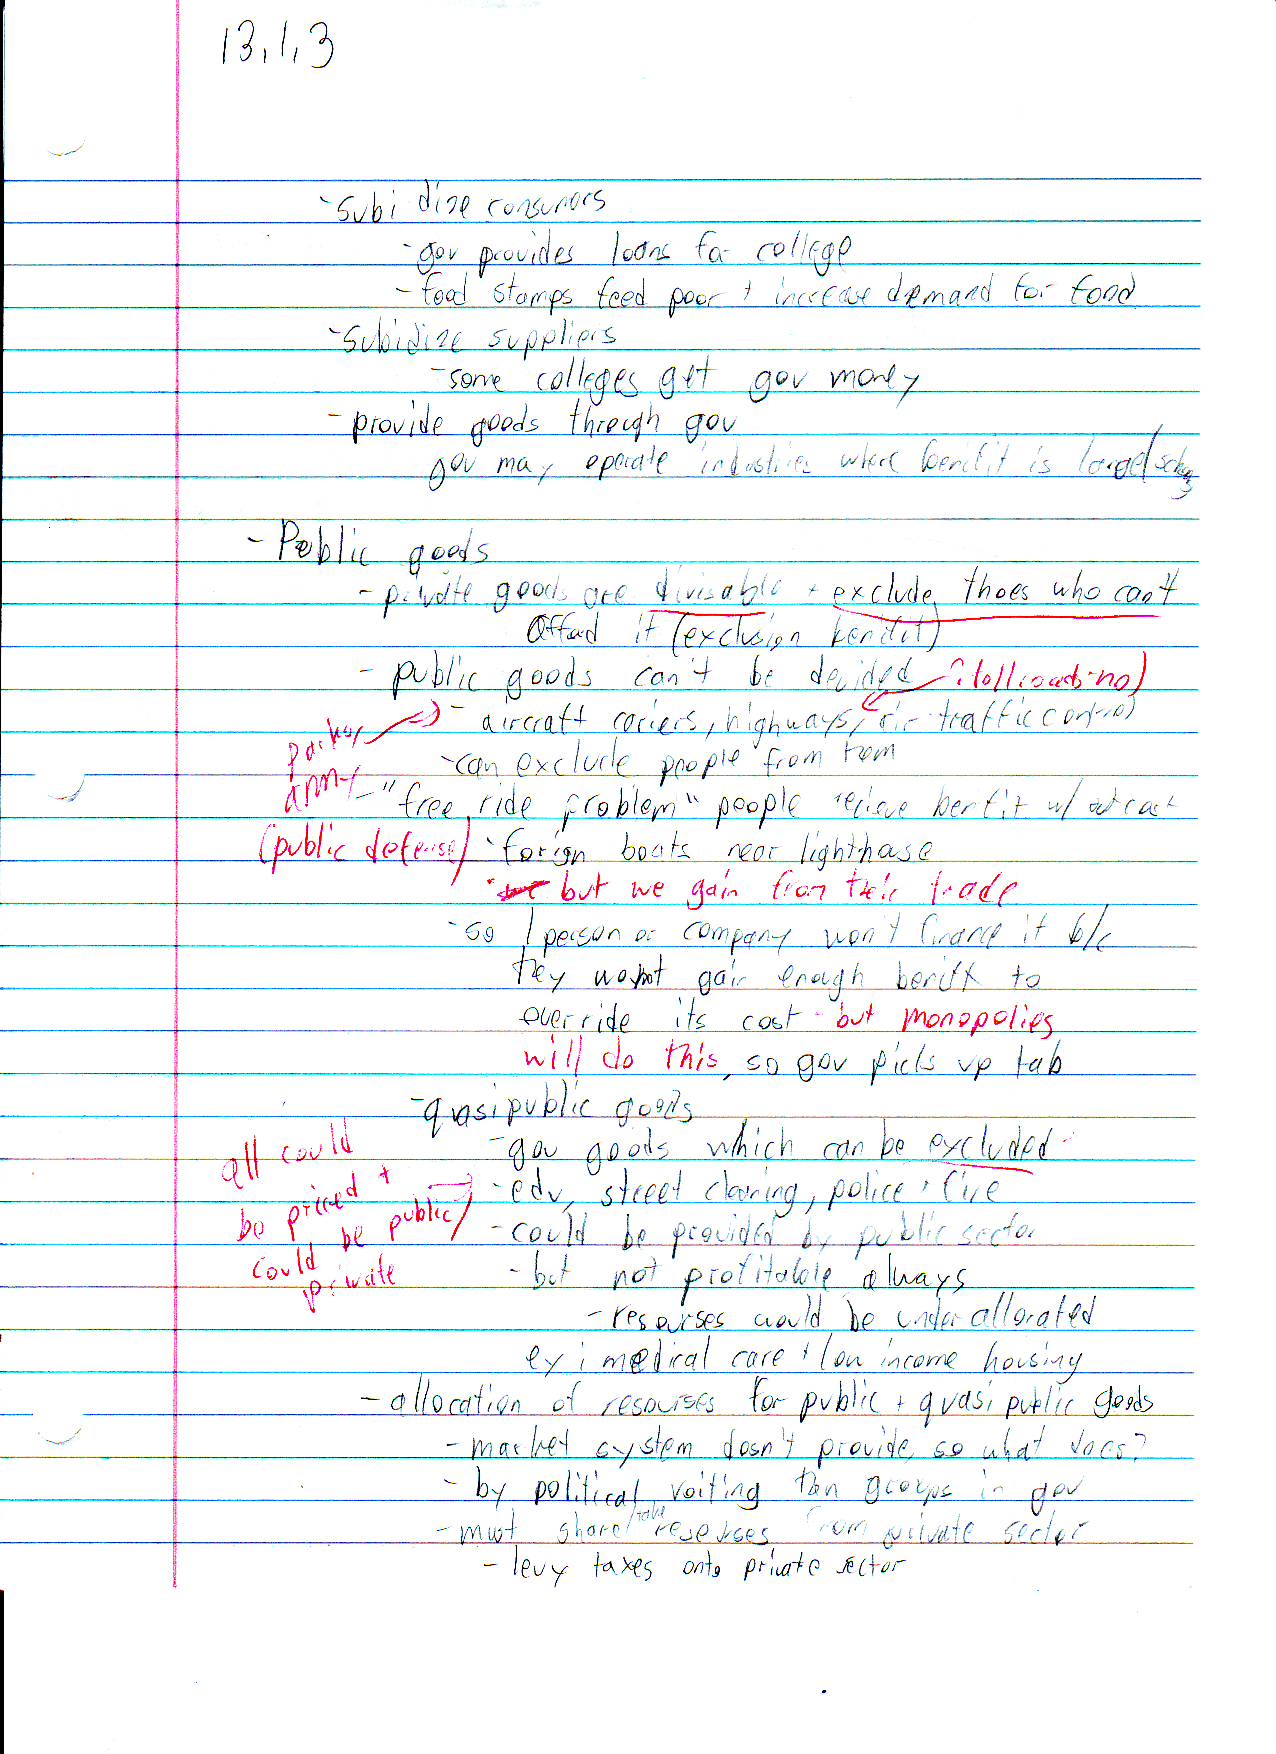 13.1.3
- subidize consumers
- gov provides loans for college
- food stamps feed poor + increase demand for food
- subidize suppliers
- some colleges get gov money
- provide goods through gov
gov may operate industries where benifit is large/
- Public goods
- private goods are divisable + exclude thoes who can't
afford it (exclusion benifit)
- public goods can't be decided (tollroads-no)
- aircraft coriers, highways, air traffic control
army
- can exclude people from tem
- "free ride problem" people recieve benfit w/ out cost
(public defense)
- forign boats near lighthouse
but we gain from their trade
- so 1 person or company won't finance it b/c
they gain enough benift to
override its cost but monopolies
will do this, so gov picks up tab
- quasipublic goods
- gov goods which can be excluded
all could
be priced +
could be public/
private
- edu, street cleaning, police + fire
- could be provided by public sector
- but not profitable always
- resourses would be under allocated
ex: medical care + low income housing
- allocation of resourses for public + quasi public goods
- market system dosn't provide, so what does?
- by political voiting than groups in gov
- must share/take resourses from private sector
- levy taxes onto private sector